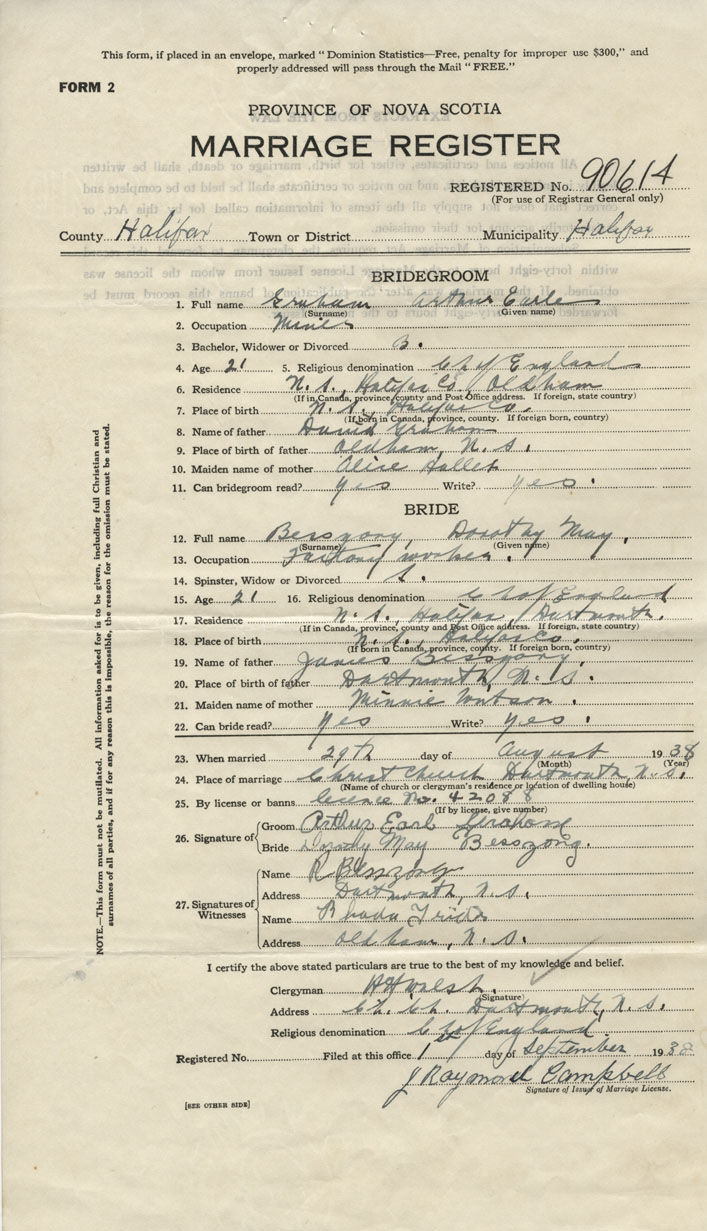 This form, if placed in an envelope, marked "Dominion Statistics—Free, penalty for improper use $300," and
properly addressed will pass through the Mail "FREE."
FORM 2
PROVINCE OF NOVA SCOTIA
MARRIAGE REGISTER
REGISTERED No. 90614
(For use of Registrar General only)
County Halifax Town or District Municipality Halifax
BRIDEGROOM
1. Full name Graham Arthur Earle
(Surname) (Given name)
2. Occupation Miner
3. Bachelor, Widower or Divorced B.
4. Age 21 5. Religious denomination Ch of England
6. Residence N.S., Halifax Co. Oldham
(If in Canada, province, county and Post Office address. If foreign, state country)
7. Place of birth N.S., Halifax Co.
(If born in Canada, province, county. If foreign born, country)
8. Name of father David Graham
9. Place of birth of father Oldham, N.S.
10. Maiden name of mother Alice
11. Can bridegroom read? yes Write? yes.
BRIDE
12. Full name Bessgony, Dorothy May,
(Surname) (Given name)
13. Occupation Factory worker.
14. Spinster, Widow or Divorced S.
15. Age 21 16. Religious denomination Ch of England
17. Residence N.S., Halifax, Dartmouth.
(If in Canada, province, county and Post Office address. If foreign, state country)
18. Place of birth N.S., Halifax Co.
(If born in Canada, province, county. If foreign born, country)
19. Name of father James Bessgony.
20. Place of birth of father Dartmouth, N.S.
21. Maiden name of mother Minnie Watson.
22. Can bride read? yes Write? yes.
23. When married 29th day of August 1938
(Month) (Year)
24. Place of marriage Christ Church Dartmouth N.S.
(Name of church or clergyman's residence or location of dwelling house)
25. By license or banns licence No. 42088
(If by license, give number)
26. Signature of Groom Arthur Earl Graham
Bride Dorothy May Bessgony.
27. Signatures of Witnesses
Name R
Address Dartmouth, N.S.
Name Rhoda
Address Oldham, N.S.
I certify the above stated particulars are true to the best of my knowledge and belief.
Clergyman HH Walsh.
(Signature)
Address Ch. Ch. Dartmouth, N.S.
Religious denomination Ch of England.
Registered No. Filed at this office 1st day of September 1938
J Raymond Campbell
Signature of Issuer of Marriage License.
[SEE OTHER SIDE]
NOTE.—This form must not be mutilated. All information asked for is to be given, including full Christian and
surnames of all parties, and if for any reason this is impossible, the reason for the omission must be stated.